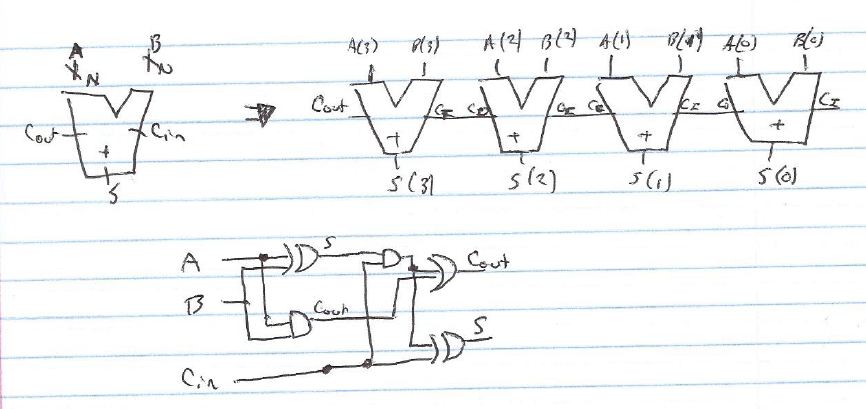 A
N
B
N
Cout
Cin
+
S
A(3) B(3) A(2) B(2) A(1) B(1) A(0) B(0)
Cout CI CO CI CO CI CO CI
+ + + +
S(3) S(2) S(1) S(0)
A
S
Cout
B
Cout
S
Cin